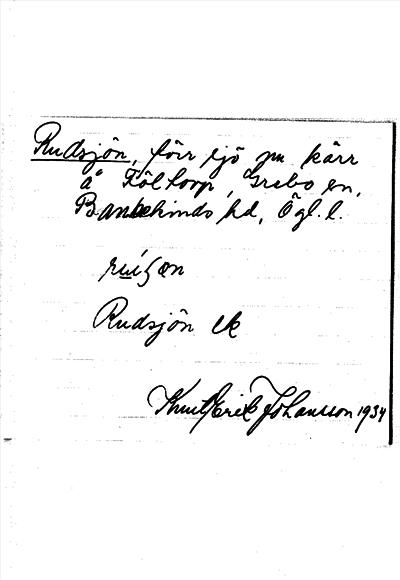 Rudsjön, förr sjö nu kärr
å Föltorp, Grebo sn,
Bankekinds hd, Ögl. l.
Rudsjön ek
Knut Erik Johansson 1934